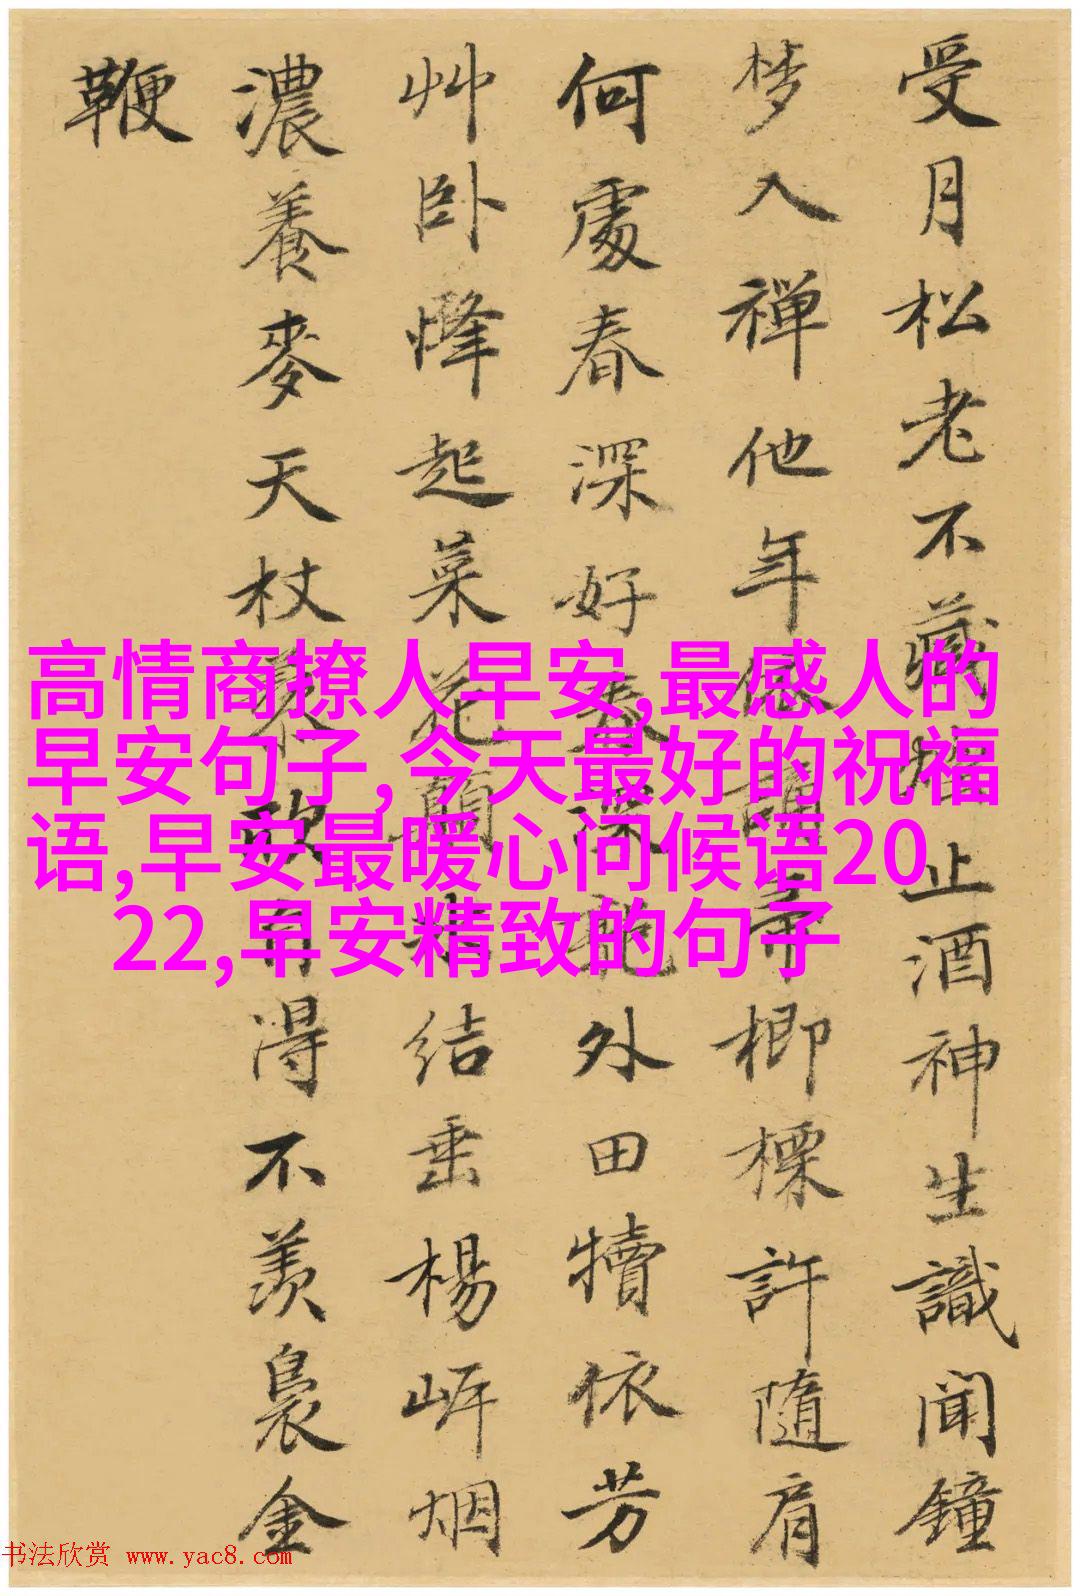 受月松老不藏止酒神生識聞鐘
梦入禅他年尋楖標許隨肩
何處春深好春深外田犢依芳
艸卧起菜花顛結垂楊岍烟
濃養麥天杖歌自得不羨裊金
鞭
高情商撩人早安,最感人的
早安句子,今天最好的祝福
语,早安最暖心问候语20
22,早安精致的句子
书法欣赏 www.yac8.com